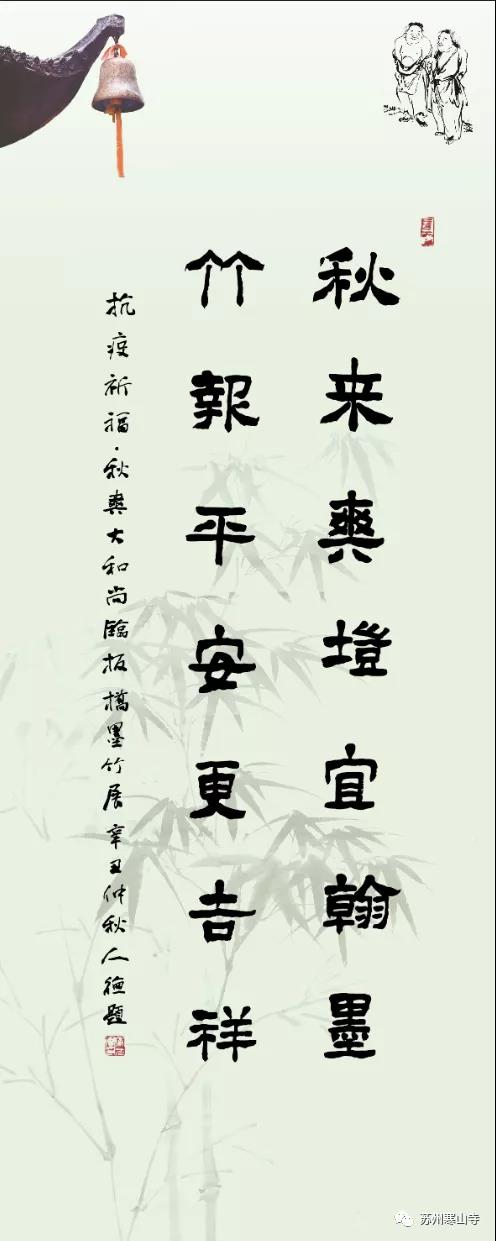 秋来爽塏宜翰墨
竹報平安更吉祥
抗疫祈福·秋爽大和尚臨板橋墨竹展 辛丑仲秋 人德題
苏州寒山寺